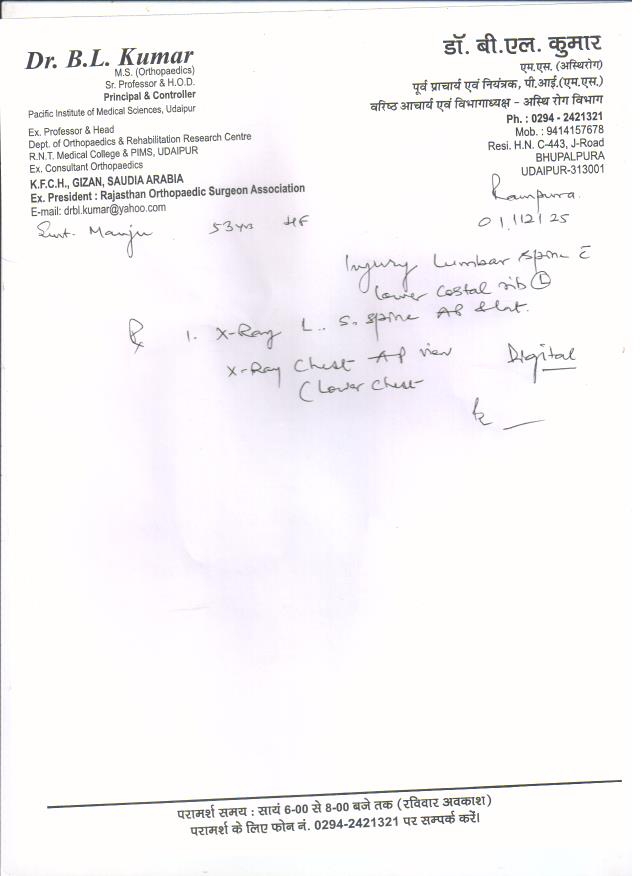 Dr. B.L. Kumar
M.S. (Orthopaedics)
Sr. Professor & H.O.D.
Principal & Controller
Pacific Institute of Medical Sciences, Udaipur
Ex. Professor & Head
Dept. of Orthopaedics & Rehabilitation Research Centre
R.N.T. Medical College & PIMS, UDAIPUR
Ex. Consultant Orthopaedics
K.F.C.H., GIZAN, SAUDIA ARABIA
Ex. President : Rajasthan Orthopaedic Surgeon Association
E-mail: drbl.kumar@yahoo.com
डॉ. बी.एल. कुमार
एम.एस. (अस्थिरोग)
पूर्व प्राचार्य एवं नियंत्रक, पी.आई.(एम.एस.)
वरिष्ठ आचार्य एवं विभागाध्यक्ष - अस्थि रोग विभाग
Ph. : 0294 - 2421321
Mob. : 9414157678
Resi. H.N. C-443, J-Road
BHUPALPURA
UDAIPUR-313001
Rampura.
01/12/25
Smt. Manju 53 yrs
Injury Lumbar Spine c̄
lower costal rib Ⓛ
℞ 1. X-Ray L. S. Spine AP & Lat.
X-Ray Chest AP view Digital
(Lower Chest
परामर्श समय : सायं 6-00 से 8-00 बजे तक (रविवार अवकाश)
परामर्श के लिए फोन नं. 0294-2421321 पर सम्पर्क करें।